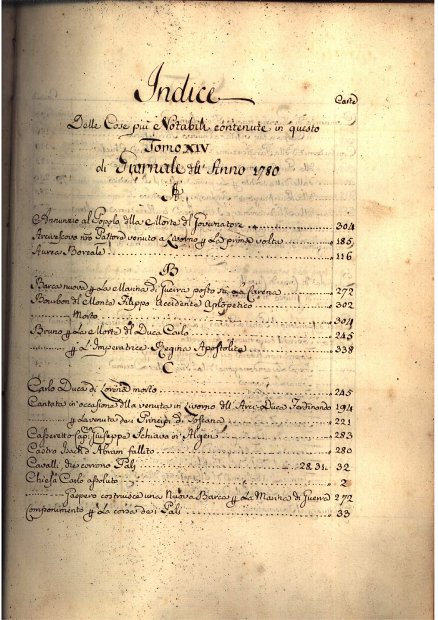 Indice
Carte
Delle Cose più Notabili contenute in questo
Tomo XIV
di Giornale dell' Anno 1780
A
Annunzio al Popolo della Morte del Governatore 304
Arcivescovo nro Pastore venuto a Livorno p la prima volta 185
Aurea Boreale 116
B
Barca nuova p la Marina di Guerra posto in Carena 272
Bourbon del Monte Filippo Accidente Apopletico 302
Morto 304
Bruno p la Morte del Duca Carlo 245
p L'Imperatrice Regina Apostolica 338
C
Carlo Duca di Lorena morto 245
Cantata in occasione della venuta in Livorno dell' Arci-Duca Ferdinando 194
p la venuta dei Principi di Toscana 221
Casperetto Cap. Giuseppe Schiavo in Algeri 283
Castro Isach d' Abram fallito 280
Cavalli che corrono Palj 28. 31. 32
Chiesa Carlo assoluto 2
Gaspero costruisce una Nuova Barca p La Marina di Guerra 272
Componimento p La corsa dei Pali 33